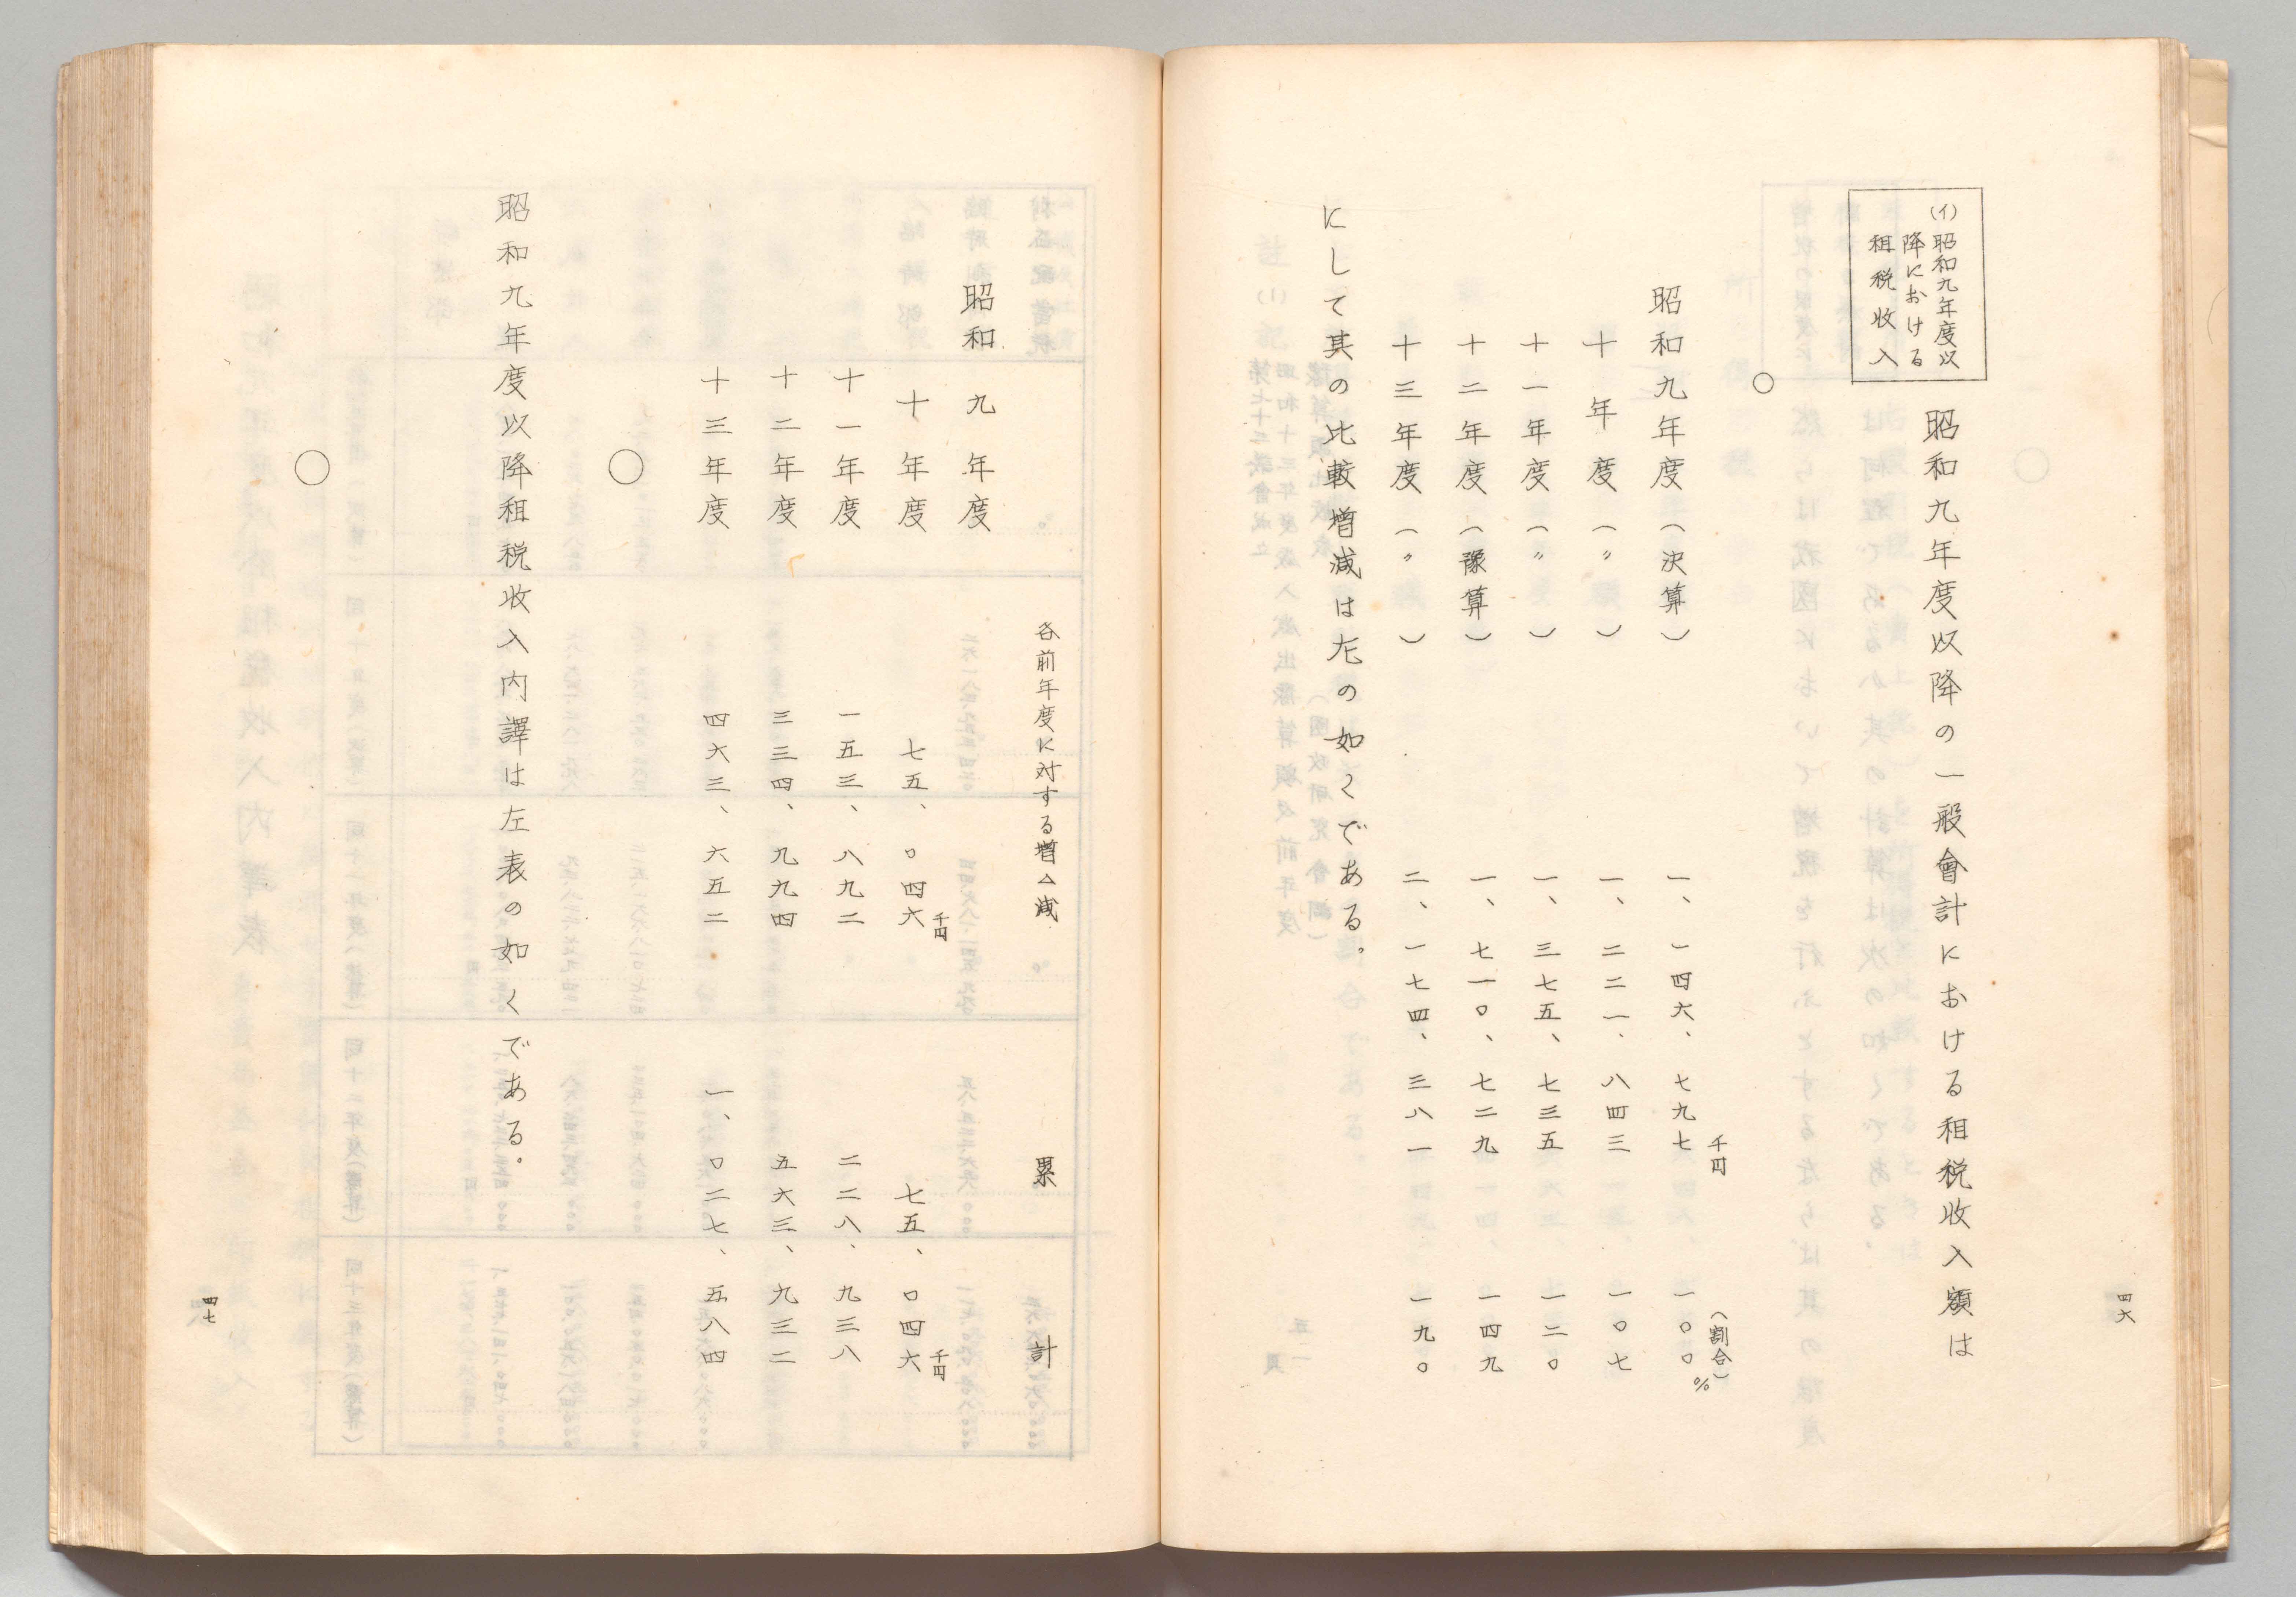 四六
(イ)昭和九年度以
降における
租税收入
昭和九年度以降の一般會計における租税收入額は
○
(割合)
千円
昭和九年度(決算) 一、一四六、七九七 一〇〇%
十年度(〃) 一、二二一、八四三 一〇七
十一年度(〃) 一、三七五、七三五 一二〇
十二年度(豫算) 一、七一〇、七二九 一四九
十三年度(〃) 二、一七四、三八一 一九〇
にして其の比較増減は左の如くである。
各前年度に対する増△減 累計
昭和九年度
千円 千円
十年度 七五、〇四六 七五、〇四六
十一年度 一五三、八九二 二二八、九三八
十二年度 三三四、九九四 五六三、九三二
十三年度 四六三、六五二 一、〇二七、五八四
○
昭和九年度以降租税收入内譯は左表の如くである。
○
四七